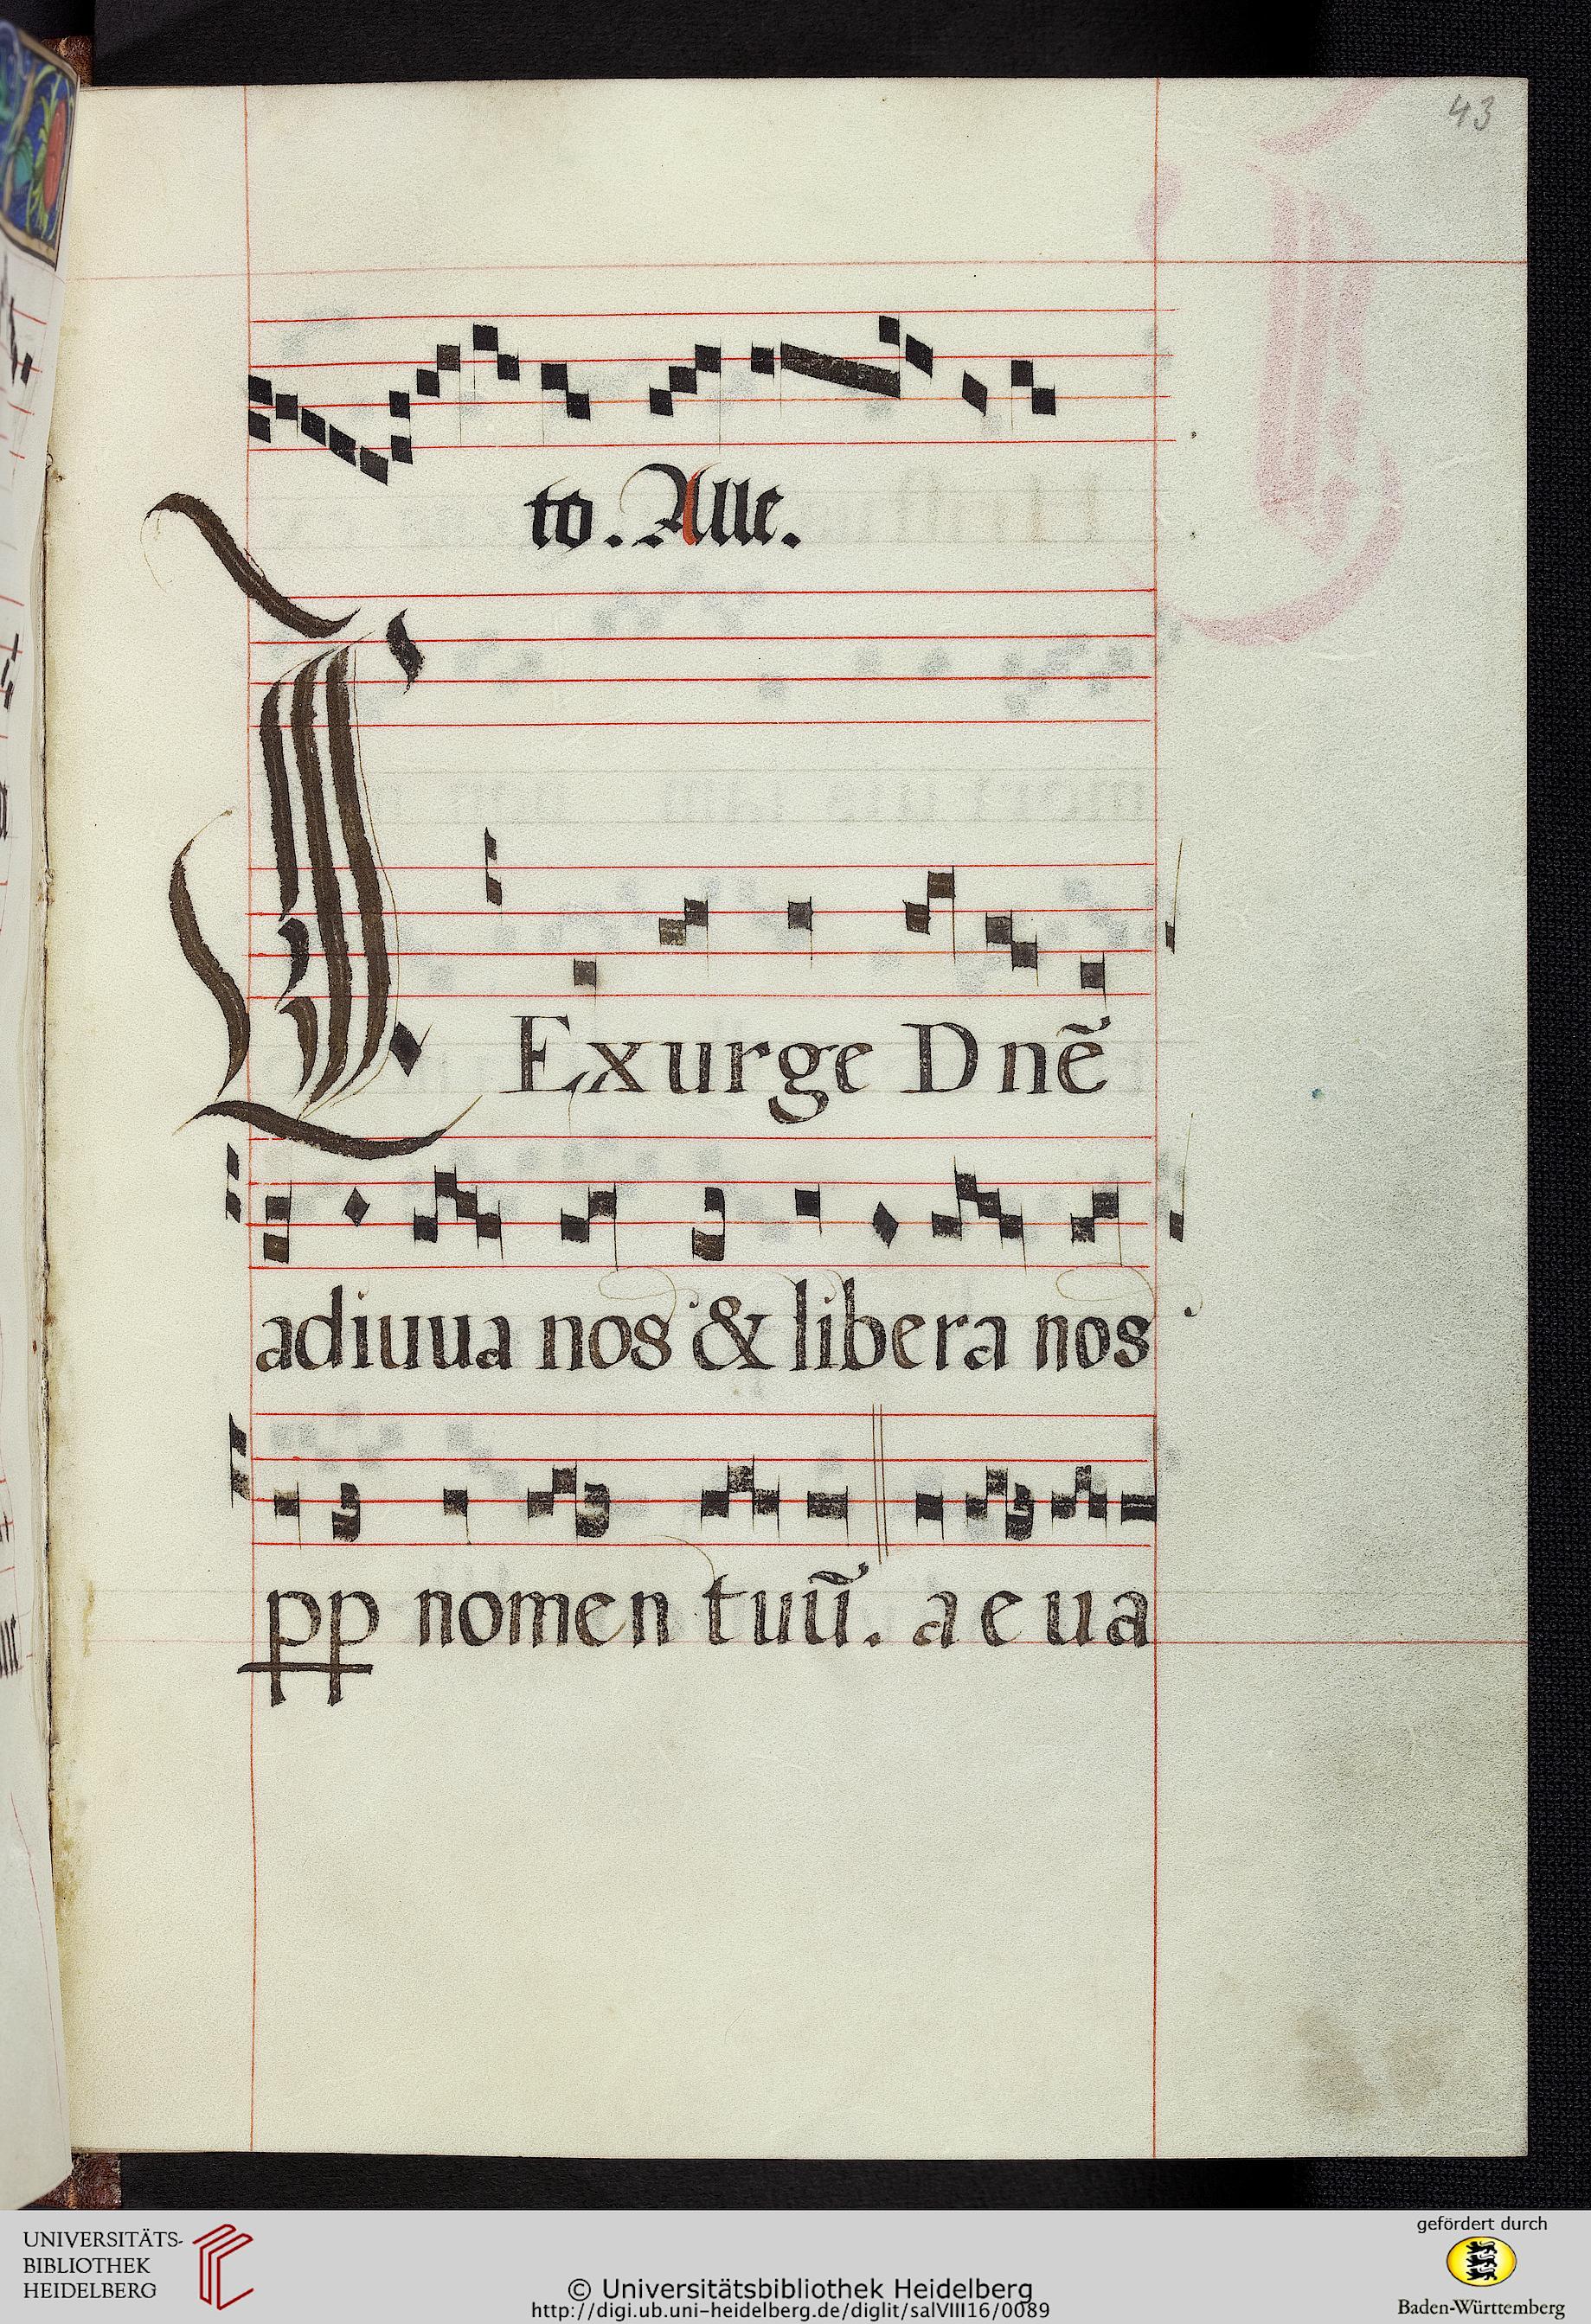 43
to. Alle.
Exurge Dnē
adiuua nos & libera nos
pp nomen tuū. a e u a
UNIVERSITÄTS-
BIBLIOTHEK
HEIDELBERG
© Universitätsbibliothek Heidelberg
http://digi.ub.uni-heidelberg.de/diglit/salVIII16/0089
gefördert durch
Baden-Württemberg